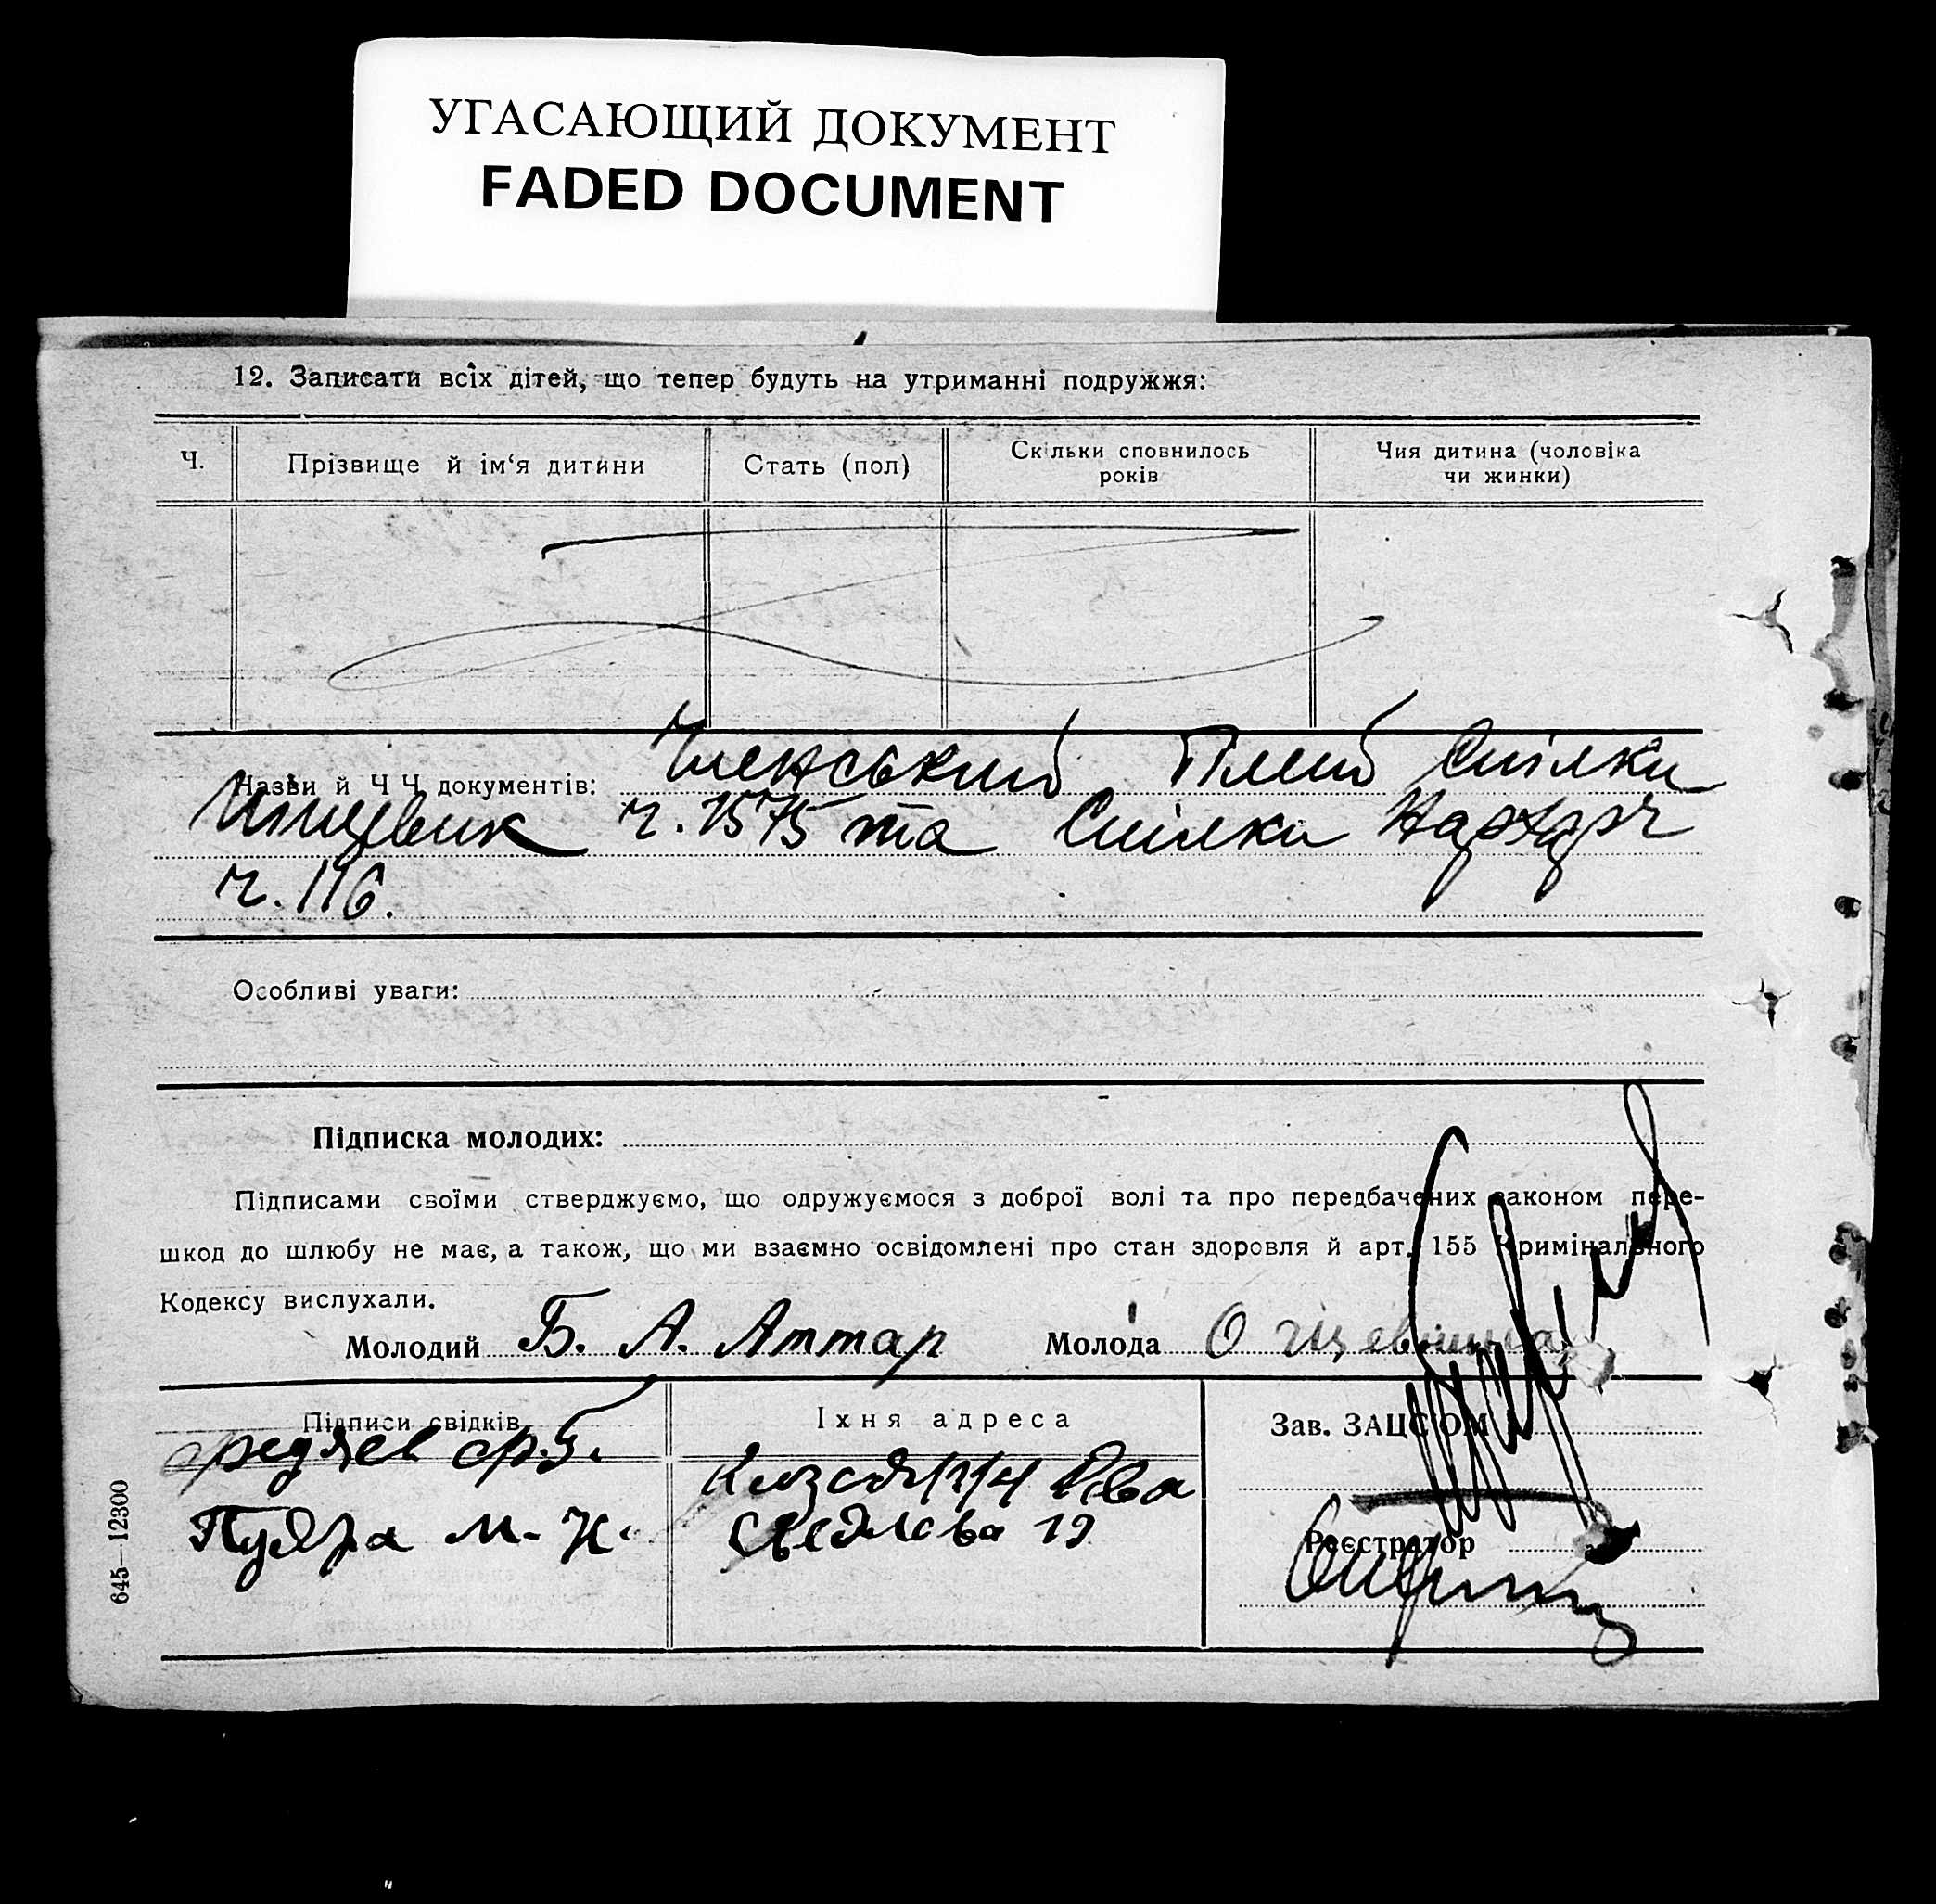 УГАСАЮЩИЙ ДОКУМЕНТ
FADED DOCUMENT
12. Записати всіх дітей, що тепер будуть на утриманні подружжя:
Ч.
Прізвище й ім‘я дитини
Стать (пол)
Скільки сповнилось
років
Чия дитина (чоловіка
чи жинки)
Назви й Ч Ч документів: Членський Спілки
ч. 1575 та Спілки
ч. 116.
Особливі уваги:
Підписка молодих:
Підписами своїми стверджуємо, що одружуємося з доброї волі та про передбачених законом пере-
шкод до шлюбу не має, а також, що ми взаємно освідомлені про стан здоровля й арт. 155 Кримінального
Кодексу вислухали.
Молодий Б. А. Аттар Молода О
Підписи свідків
Їхня адреса
Зав. ЗАЦС'ОМ
Пудра М. К.
19
Реєстратор
645—12300